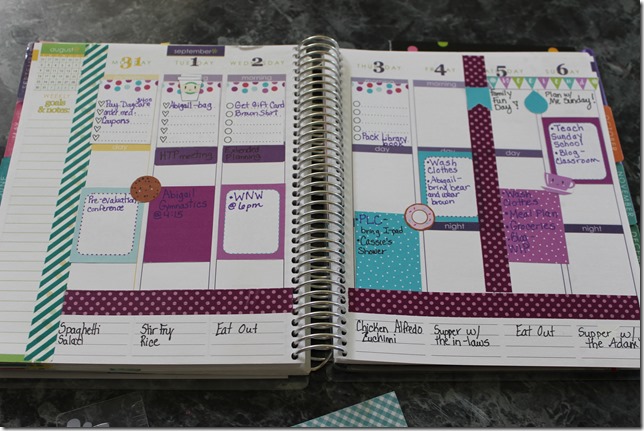 august
september
MONDAY 31
TUESDAY 1
WEDNESDAY 2
THURSDAY 3
FRIDAY 4
5
6
goals
& notes:
morning
Pay Daycare
add med.
Coupons
Abigail-bag
Get Gift Card
Brown Shirt
Pack Library
book
Family
Fun
Day!
Plan w/
Me Sunday!
day
HTP meeting
day
Wash
Clothes
Abigail-
bring bear
and wear
brown
day
Teach
Sunday
School
Blog-
Classroom
Pre-evaluation
Conference
Abigail
Gymnastics
@ 4:15
WNW
@ 6pm
PLC-
bring Ipad
Cassie's
Shower
night
Wash
Clothes
Meal Plan
Groceries
Fun
night
Spaghetti
Salad
Stir fry
Rice
Eat Out
Chicken Alfredo
Zuchinni
Supper w/
the in-laws
Eat Out
Supper w/
the Adam